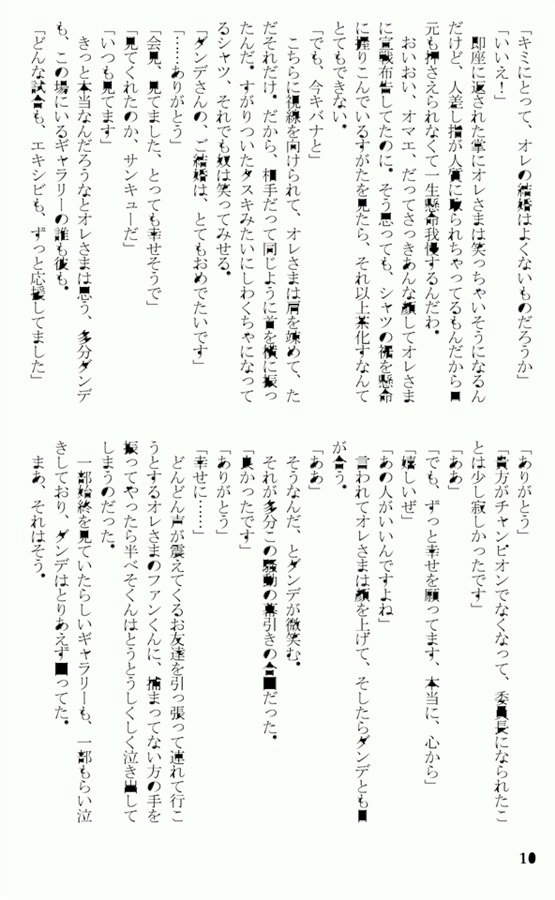 「キミにとって、オレの結婚はよくないものだろうか」
「いいえ！」
即座に返された掌にオレさまは笑っちゃいそうになるん
だけど、人差し指が人質に取られちゃってるもんだから口
元も押さえられなくて一生懸命我慢するんだわ。
おいおい、オマエ、だってさっきあんな顔してオレさま
に宣戦布告してたのに。そう思っても、シャツの裾を懸命
に握りこんでいるすがたを見たら、それ以上茶化すなんて
とてもできない。
「でも、今キバナと」
こちらに視線を向けられて、オレさまは肩を竦めて、た
だそれだけ。だから、相手だって同じように首を横に振っ
たんだ。すがりついたタスキみたいにしわくちゃになって
るシャツ、それでも奴は笑ってみせる。
「ダンデさんの、ご結婚は、とてもおめでたいです」
「……ありがとう」
「会見、見てました、とっても幸せそうで」
「見てくれたのか、サンキューだ」
「いつも見てます」
きっと本当なんだろうなとオレさまは思う、多分ダンデ
も、この場にいるギャラリーの誰も彼も。
「どんな試合も、エキシビも、ずっと応援してました」
「ありがとう」
「貴方がチャンピオンでなくなって、委員長になられたこ
とは少し寂しかったです」
「ああ」
「でも、ずっと幸せを願ってます、本当に、心から」
「嬉しいぜ」
「あの人がいいんですよね」
言われてオレさまは顔を上げて、そしたらダンデとも目
が合う。
「ああ」
そうなんだ、とダンデが微笑む。
それが多分この騒動の幕引きの合図だった。
「良かったです」
「ありがとう」
「幸せに……」
どんどん声が震えてくるお友達を引っ張って連れて行こ
うとするオレさまのファンくんに、捕まってない方の手を
振ってやったら半べそくんはとうとうしくしく泣き出して
しまうのだった。
一部始終を見ていたらしいギャラリーも、一部もらい泣
きしており、ダンデはとりあえず ってた。
まあ、それはそう。
10